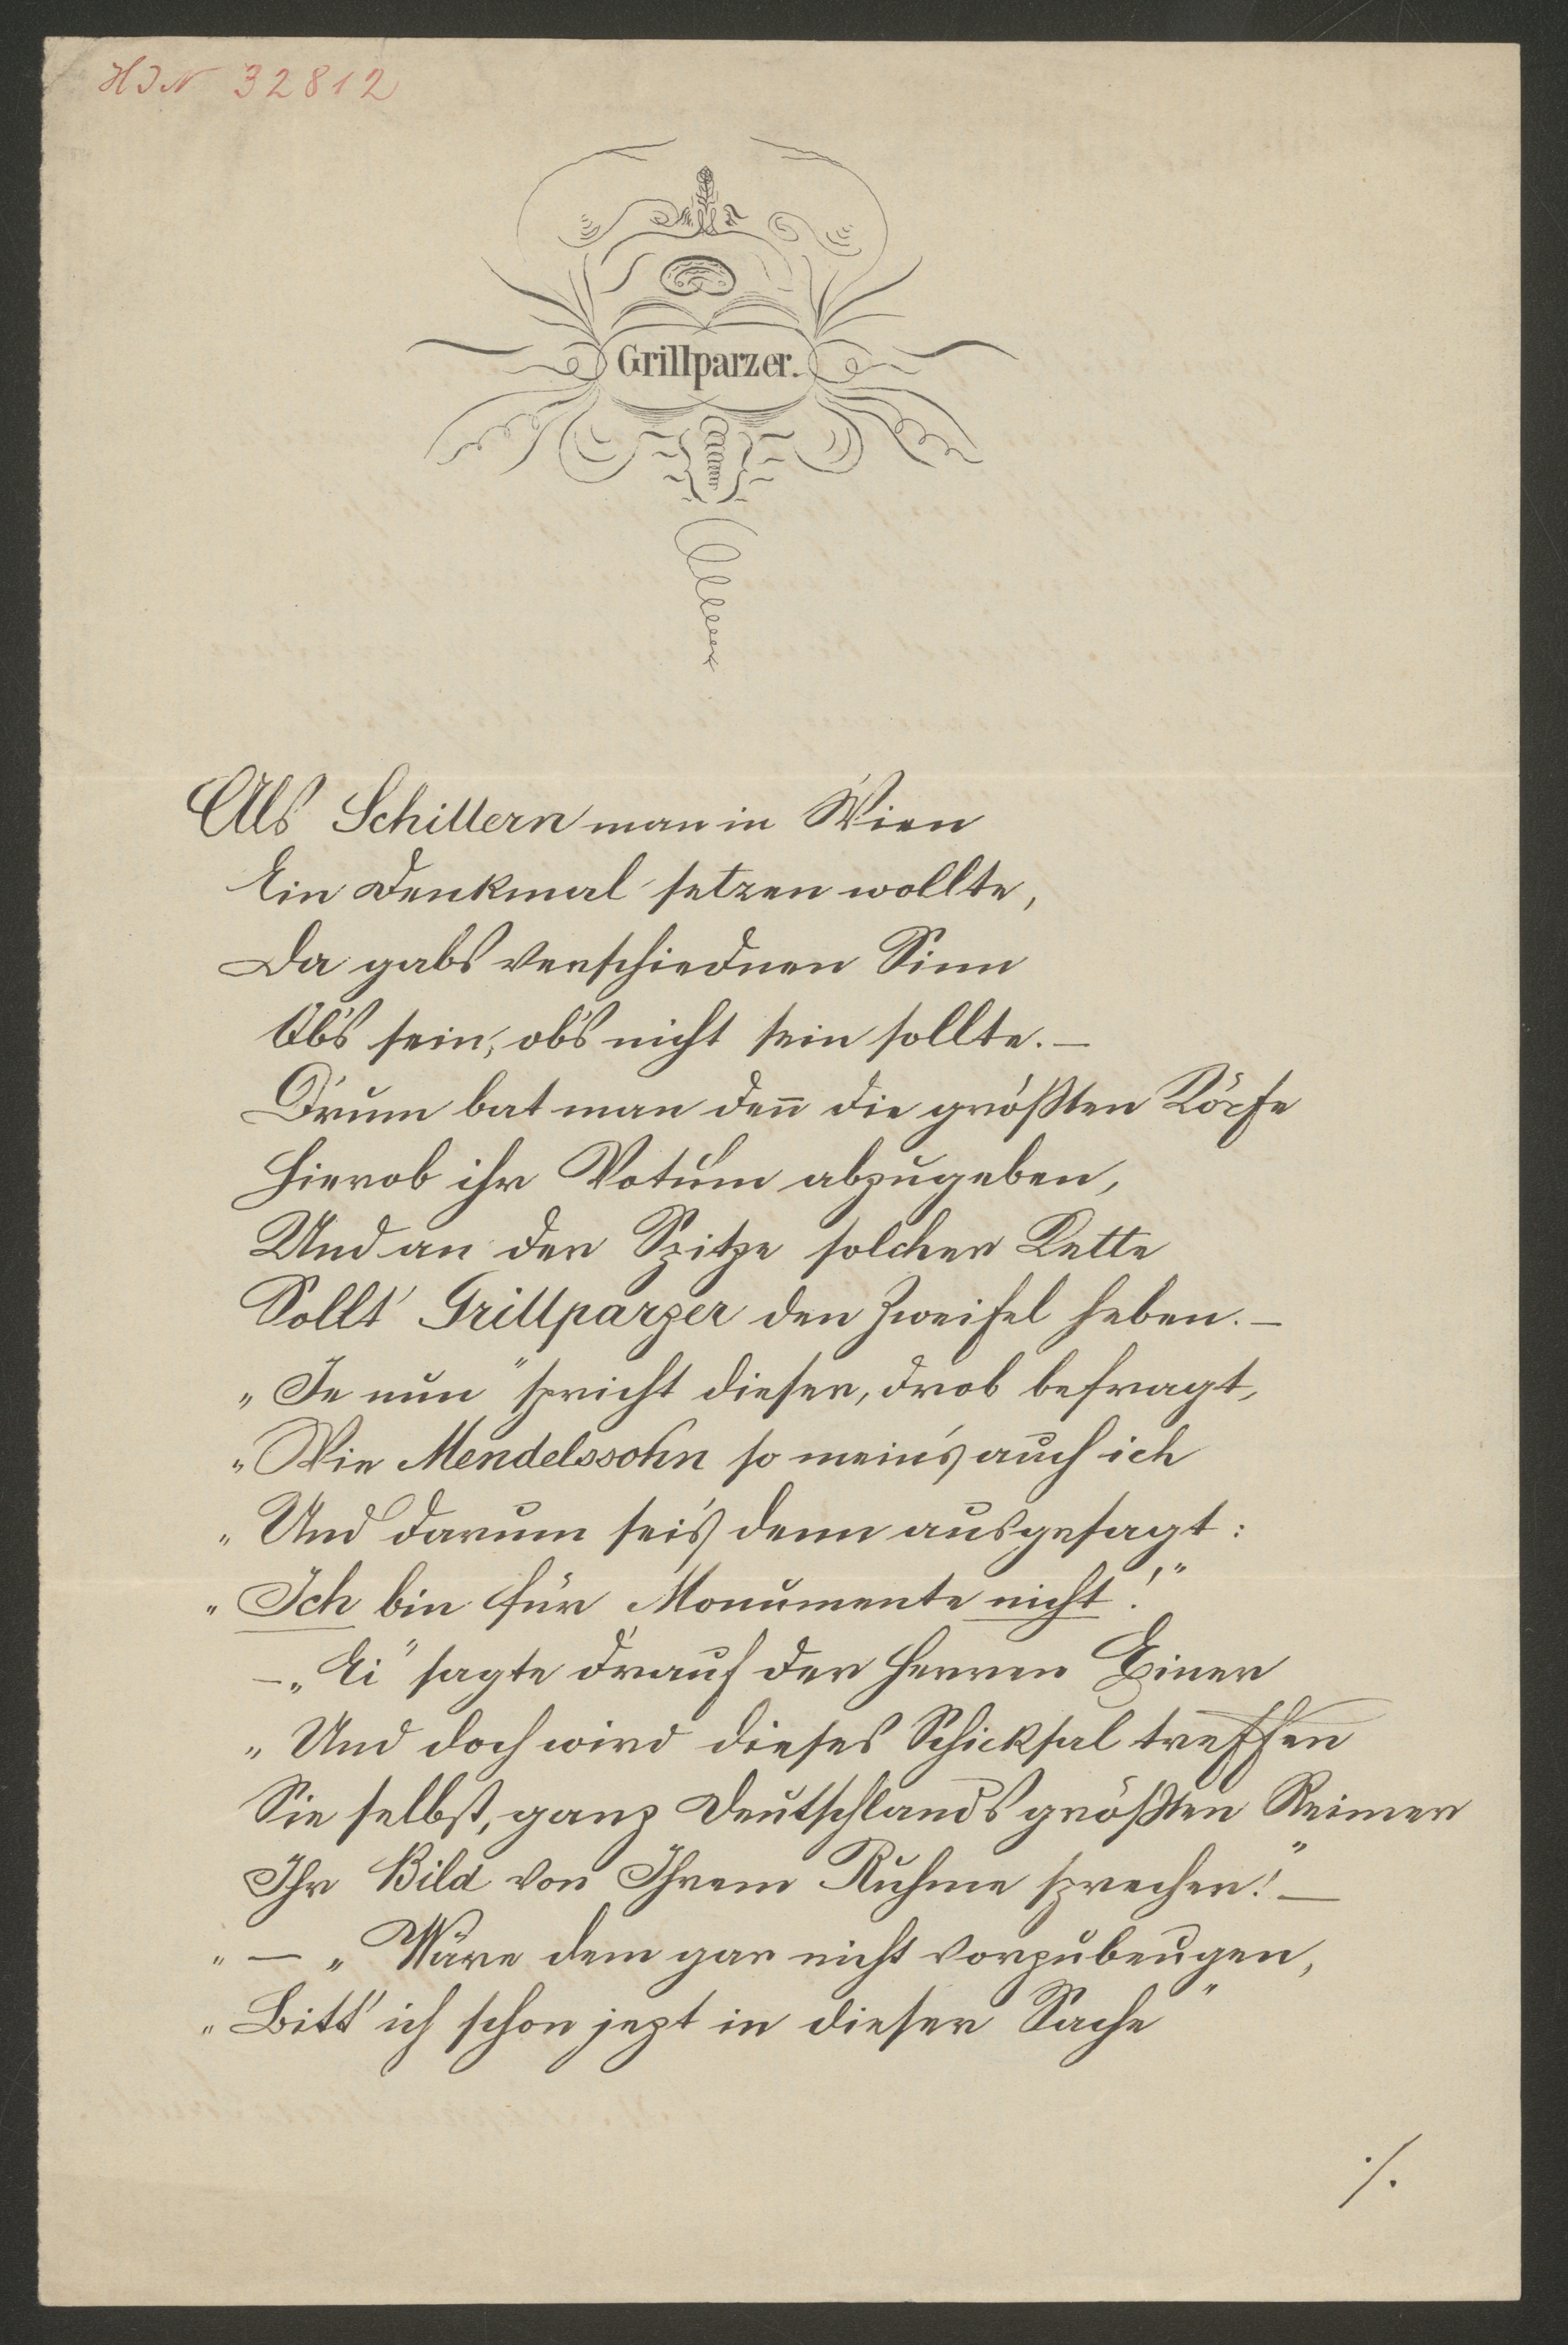 HIN 32812
Grillparzer.
Als Schillern man in Wien
Ein Denkmal setzen wollte,
Da gabs verschiednen Sinn
Ob's sein, ob's nicht sein sollte. —
D'rum bat man den̅ die größten Köpfe
Hierob ihr Votum abzugeben,
Und an der Spitze solcher Kette
Sollt' Grillparzer den Zweifel heben. —
„Je nun" spricht dieser, drob befragt,
„Wie Mendelssohn so mein's auch ich
„Und darum sei's denn ausgesagt:
„Ich bin für Monumente nicht!"
— „Ei" sagte d'rauf der Herren Einer
„Und doch wird dieses Schicksal treffen
Sie selbst, ganz Deutschlands größten Reimer
Ihr Bild von Ihrem Ruhme sprechen!" —
„ — „Wäre dem gar nicht vorzubeugen,
„Bitt' ich schon jezt in dieser Sache"
./.